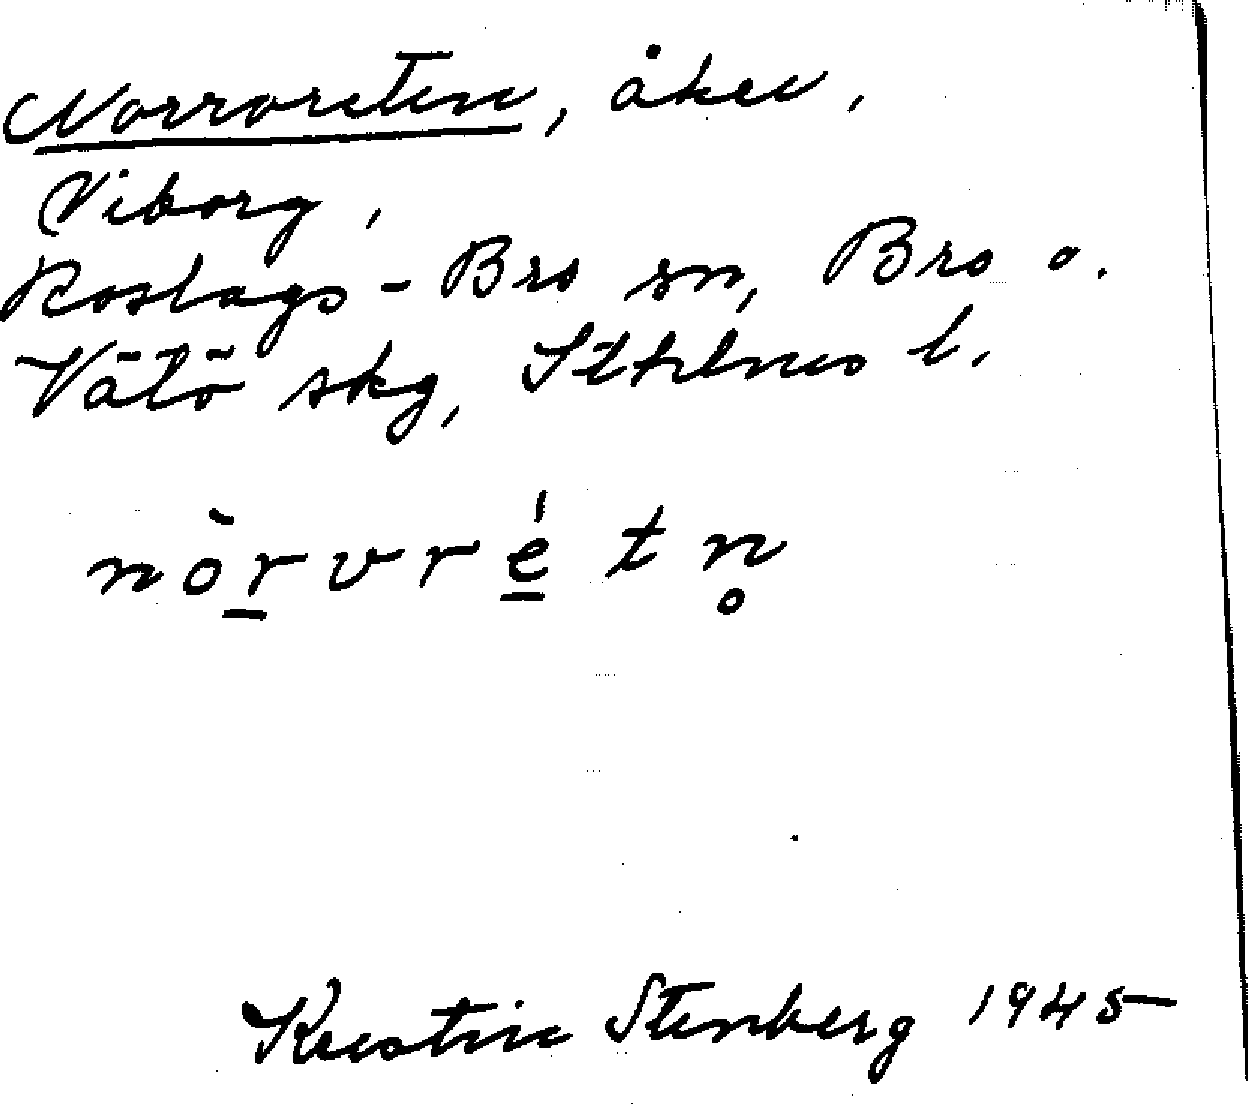 Norrvreten, åker,
Viborg,
Roslags-Bro sn, Bro o.
Vätö skg, Sthlms l.
nòrvrétn̥
Kerstin Stenberg 1945